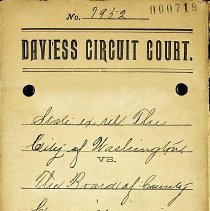 No. 7952
000719
DAVIESS CIRCUIT COURT.
State ex rel The
City of Washington
VS.
The Board of County